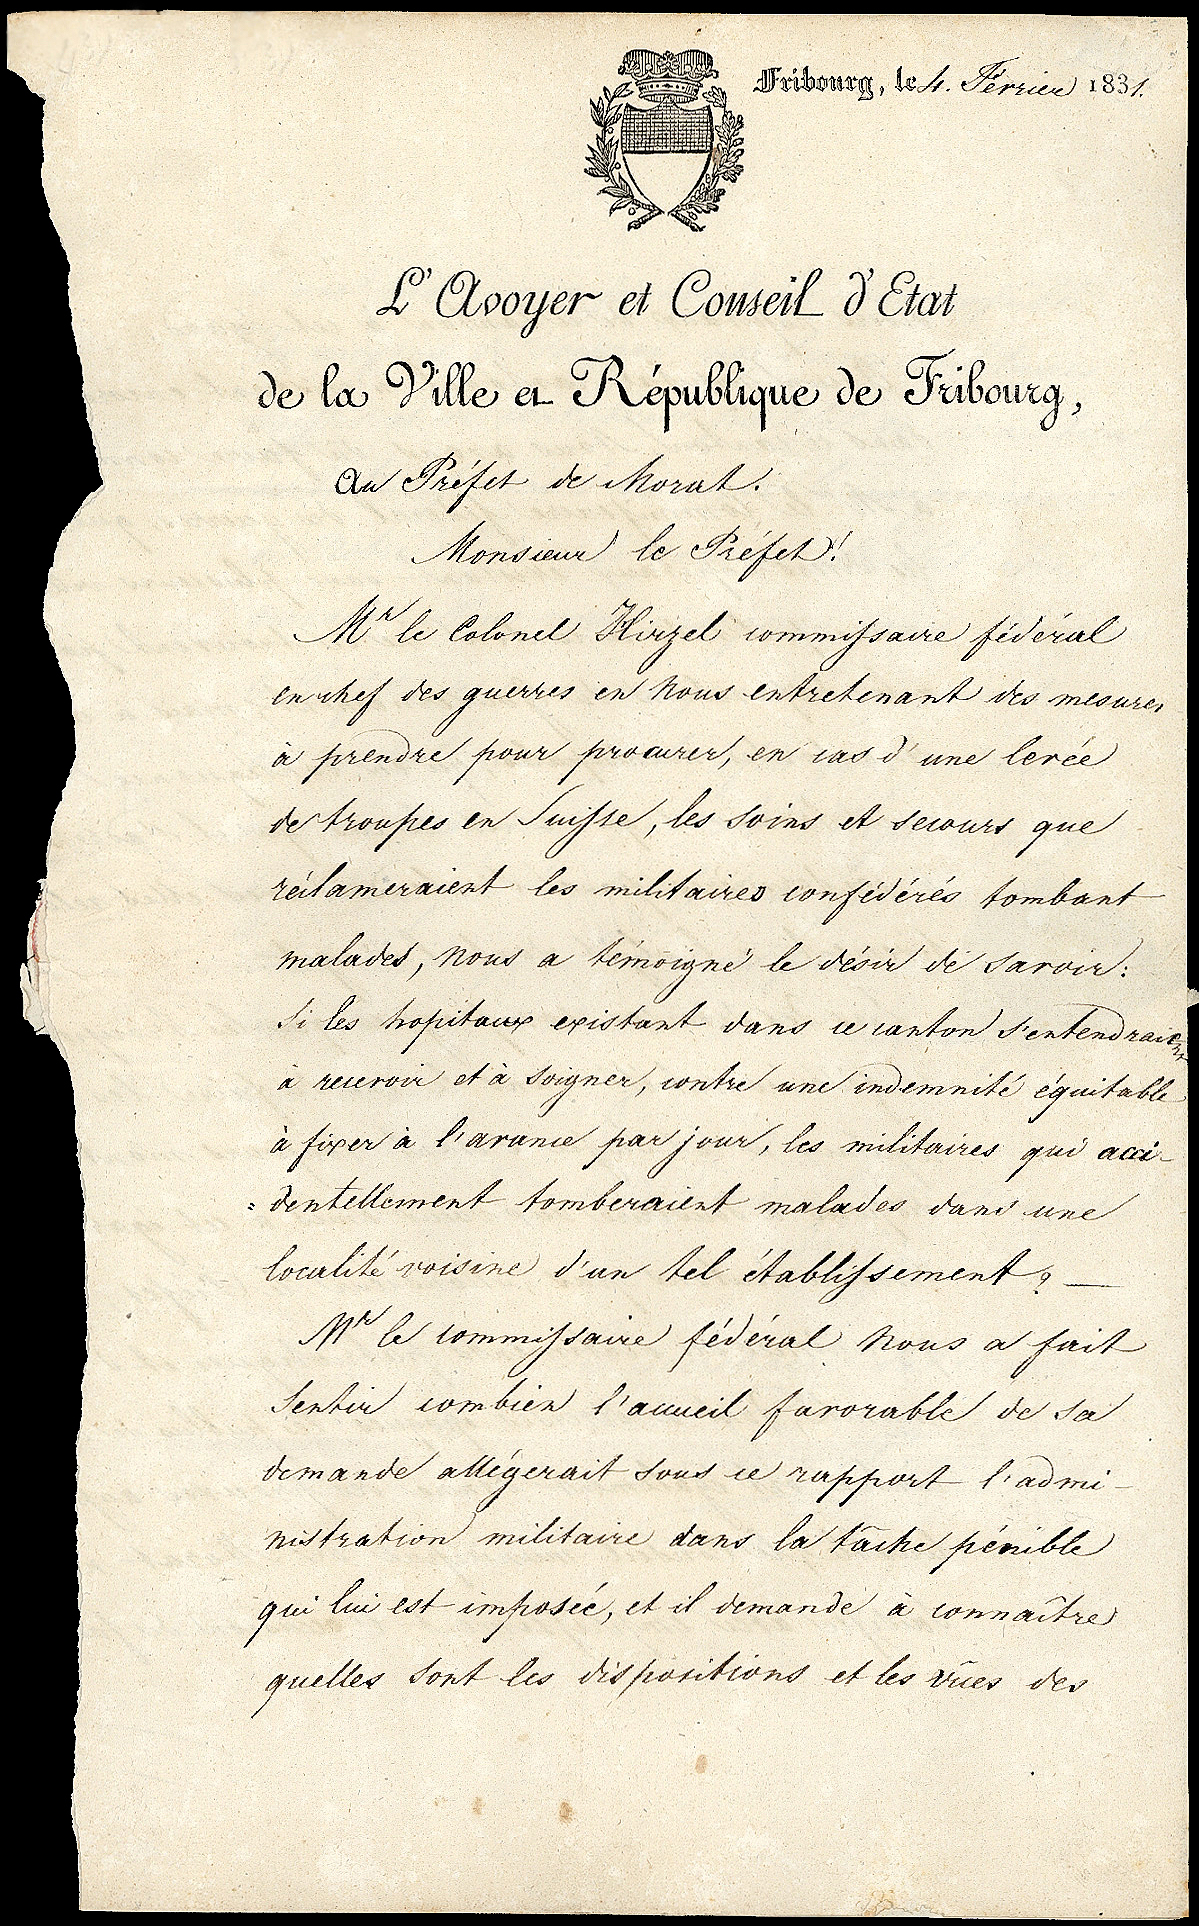 Fribourg, le 4. Février 1831.
L'Avoyer et Conseil d'Etat
de la Ville et République de Fribourg,
Au Préfet de Morat.
Monsieur le Préfet!
Mr le Colonel Hirzel commissaire fédéral
en chef des guerres en nous entretenant des mesures
à prendre pour procurer, en cas d'une levée
de troupes en Suisse, les soins et secours que
réclameraient les militaires confédérés tombant
malades, nous a témoigné le désir de savoir:
si les hopitaux existant dans ce canton s'entendraient
à recevoir et à soigner, contre une indemnité équitable
à fixer à l'avance par jour, les militaires qui acci-
=dentellement tomberaient malades dans une
localité voisine d'un tel établissement? —
Mr le commissaire fédéral nous a fait
sentir combien l'accueil favorable de sa
demande allégerait sous ce rapport l'admi-
nistration militaire dans la tâche pénible
qui lui est imposée, et il demande à connaître
quelles sont les dispositions et les vûes des